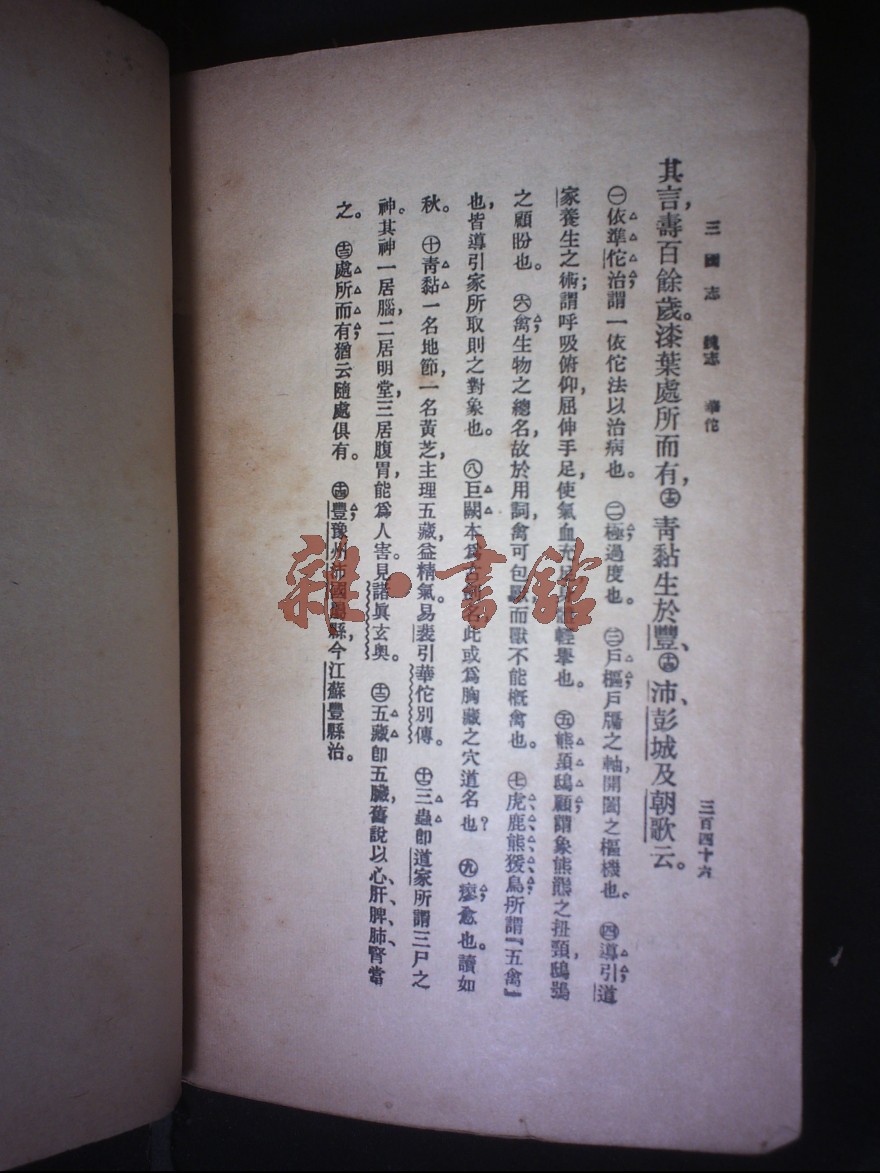 三國志 魏志 華佗 三百四十六
其言，壽百餘歲。漆葉處所而有，㊂青黏生於豐、㊃沛、彭城及朝歌云。
㊀依準佗治；謂一依佗法以治病也。㊁極；過度也。㊂戶樞；戶牖之軸，開闔之樞機也。㊃導引；道
家養生之術；謂呼吸俯仰，屈伸手足，使氣血充足，身體輕舉也。㊄熊頸鴟顧；謂象熊羆之扭頸，鴟鴞
之顧盼也。㊅禽；生物之總名，故於用詞，禽可包獸而獸不能概禽也。㊆虎、鹿、熊、猨、鳥；所謂『五禽』
也，皆導引家所取則之對象也。㊇巨闕本爲古劍名，此或爲胸藏之穴道名也？㊈瘳；愈也。讀如
秋。㊉青黏一名地節，一名黃芝，主理五藏，益精氣。易裴引華佗別傳。(十一)三蟲卽道家所謂三尸之
神。其神一居腦，二居明堂，三居腹胃，能爲人害。見諸眞玄奧。(十二)五藏卽五臟，舊說以心、肝、脾、肺、腎當
之。(十三)處所而有；猶云隨處俱有。(十四)豐；豫州沛國豐縣，今江蘇豐縣治。
雜·書館